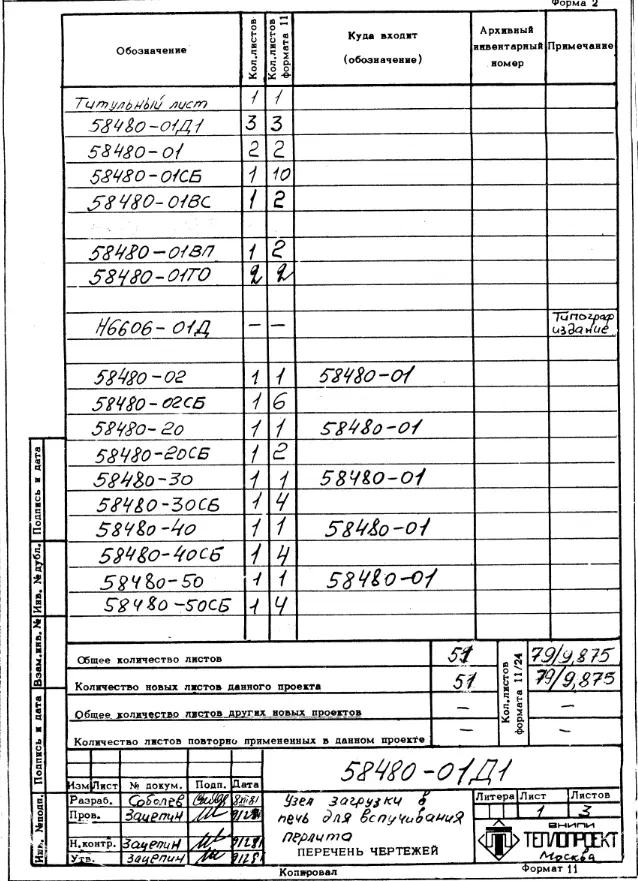 Форма 2
Обозначение Кол.листов Кол.листов формата 11 Куда входит (обозначение) Архивный инвентарный номер Примечание
Титульный лист 1 1
58480-01Д1 3 3
58480-01 2 2
58480-01СБ 1 10
58480-01ВС 1 2
58480-01ВП 1 2
58480-01ТО 2 2
Н6606-01Д — — Типограф издание
58480-02 1 1 58480-01
58480-02СБ 1 6
58480-20 1 1 58480-01
58480-20СБ 1 2
58480-30 1 1 58480-01
58480-30СБ 1 4
58480-40 1 1 58480-01
58480-40СБ 1 4
58480-50 1 1 58480-01
58480-50СБ 1 4
Общее количество листов 51 Кол.листов формата 11/24 79/9,875
Количество новых листов данного проекта 51 79/9,875
Общее количество листов других новых проектов — —
Количество листов повторно примененных в данном проекте — —
Инв. №подп. Подпись и дата Взам.инв.№ Инв. №дубл. Подпись и дата
58480-01Д1
Изм Лист № докум. Подп. Дата
Разраб. Соболев
Пров. Зацепин
Н.контр. Зацепин
Утв. Зацепин
Узел загрузки в
печь для вспучивания
перлита
ПЕРЕЧЕНЬ ЧЕРТЕЖЕЙ
Литера Лист Листов
1 3
ВНИПИ
ТЕПЛОПРОЕКТ
Москва
Копировал Формат 11